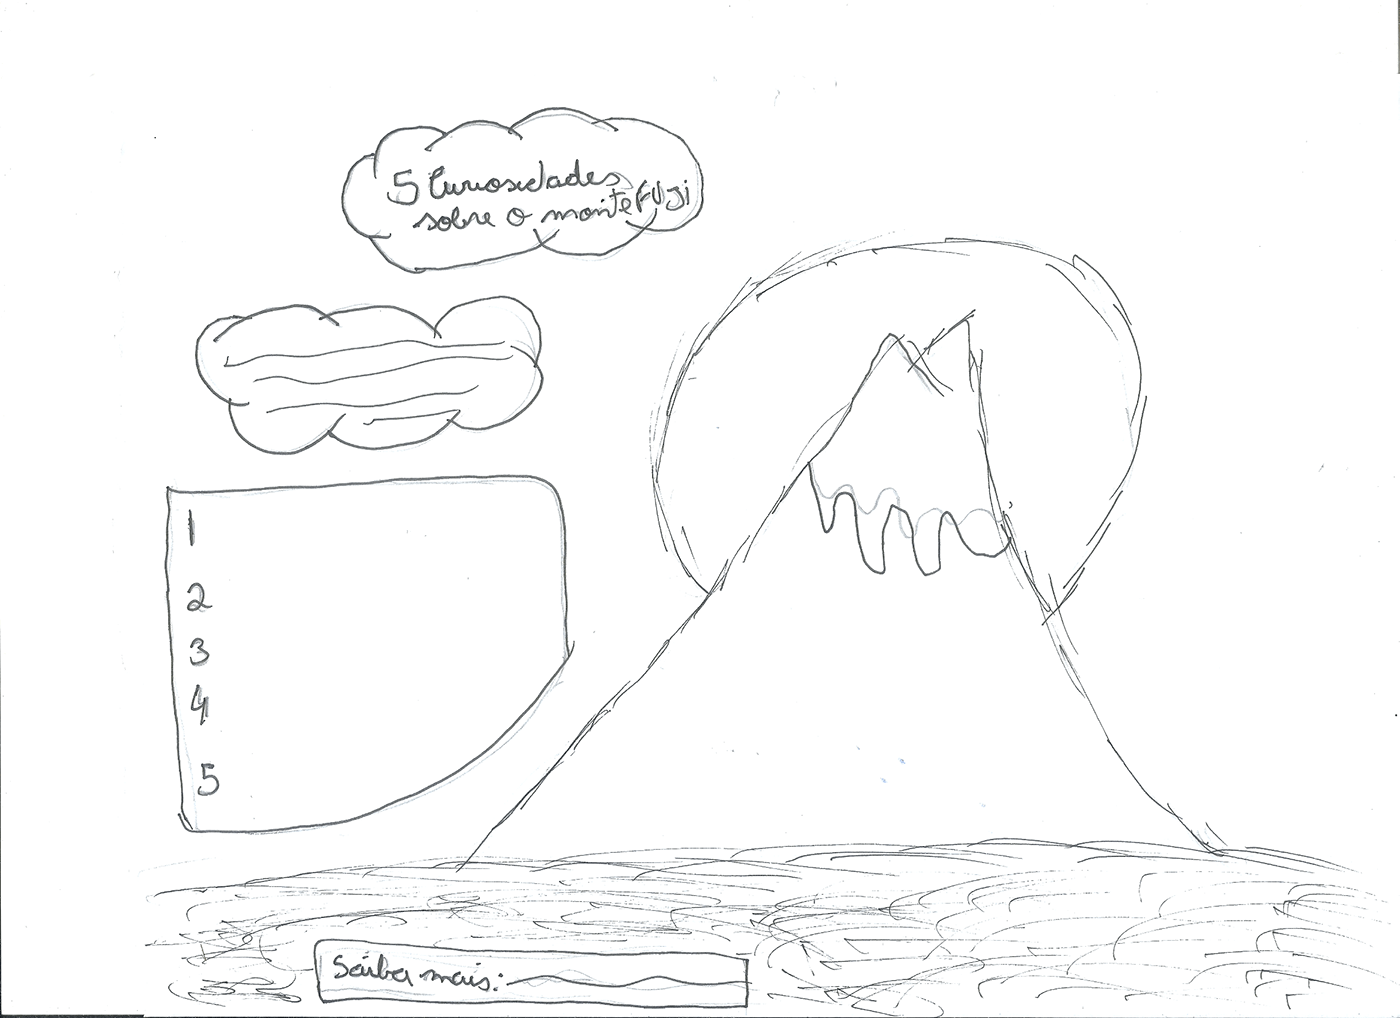 5 Curiosidades
sobre o monte FUJi
1
2
3
4
5
Saiba mais: